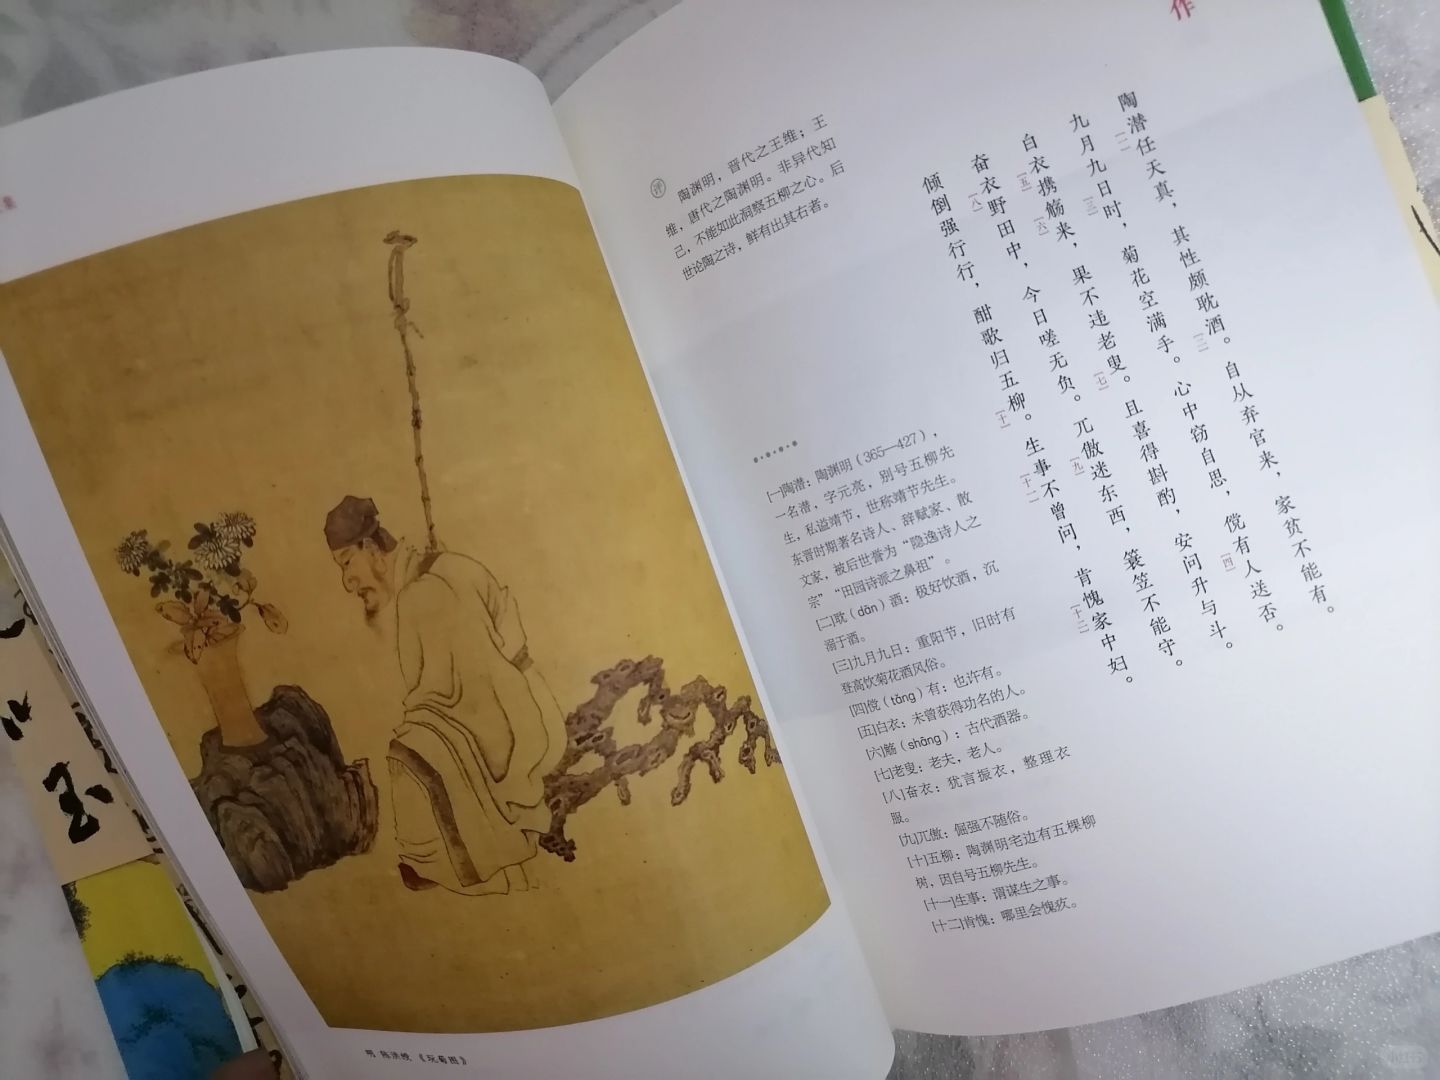 作
陶潜[一]任天真，其性颇耽酒[二]。自从弃官来，家贫不能有。
九月九日[三]时，菊花空满手。心中窃自思，傥[四]有人送否。
白衣[五]携觞[六]来，果不违老叟[七]。且喜得斟酌，安问升与斗。
奋衣[八]野田中，今日嗟无负。兀傲[九]迷东西，蓑笠不能守。
倾倒强行行，酣歌归五柳[十]。生事[十一]不曾问，肯愧[十二]家中妇。
评
陶渊明，晋代之王维；王
维，唐代之陶渊明。非异代知
己，不能如此洞察五柳之心。后
世论陶之诗，鲜有出其右者。
[一]陶潜：陶渊明（365—427），
一名潜，字元亮，别号五柳先
生，私谥靖节，世称靖节先生。
东晋时期著名诗人、辞赋家、散
文家，被后世誉为“隐逸诗人之
宗”“田园诗派之鼻祖”。
[二]耽（dān）酒：极好饮酒，沉
溺于酒。
[三]九月九日：重阳节，旧时有
登高饮菊花酒风俗。
[四]傥（tǎng）有：也许有。
[五]白衣：未曾获得功名的人。
[六]觞（shāng）：古代酒器。
[七]老叟：老夫，老人。
[八]奋衣：犹言振衣，整理衣
服。
[九]兀傲：倔强不随俗。
[十]五柳：陶渊明宅边有五棵柳
树，因自号五柳先生。
[十一]生事：谓谋生之事。
[十二]肯愧：哪里会愧疚。
明 陈洪绶 《玩菊图》
小红书